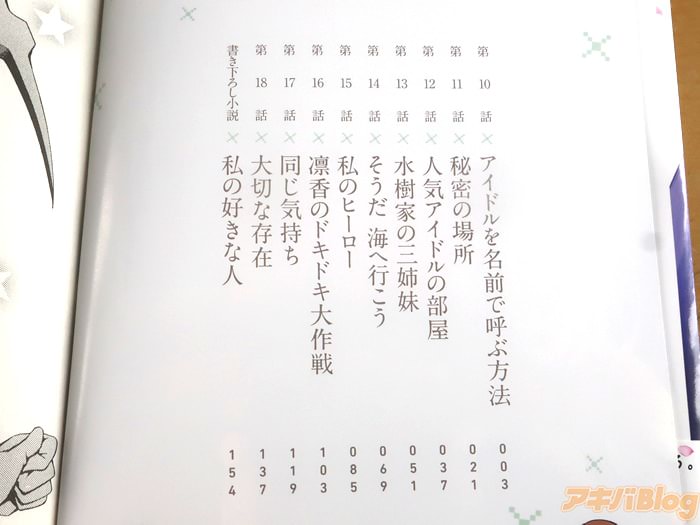 第10話 アイドルを名前で呼ぶ方法 003
第11話 秘密の場所 021
第12話 人気アイドルの部屋 037
第13話 水樹家の三姉妹 051
第14話 そうだ 海へ行こう 069
第15話 私のヒーロー 085
第16話 凛香のドキドキ大作戦 103
第17話 同じ気持ち 119
第18話 大切な存在 137
書き下ろし小説 私の好きな人 154
る。
アキバBlog